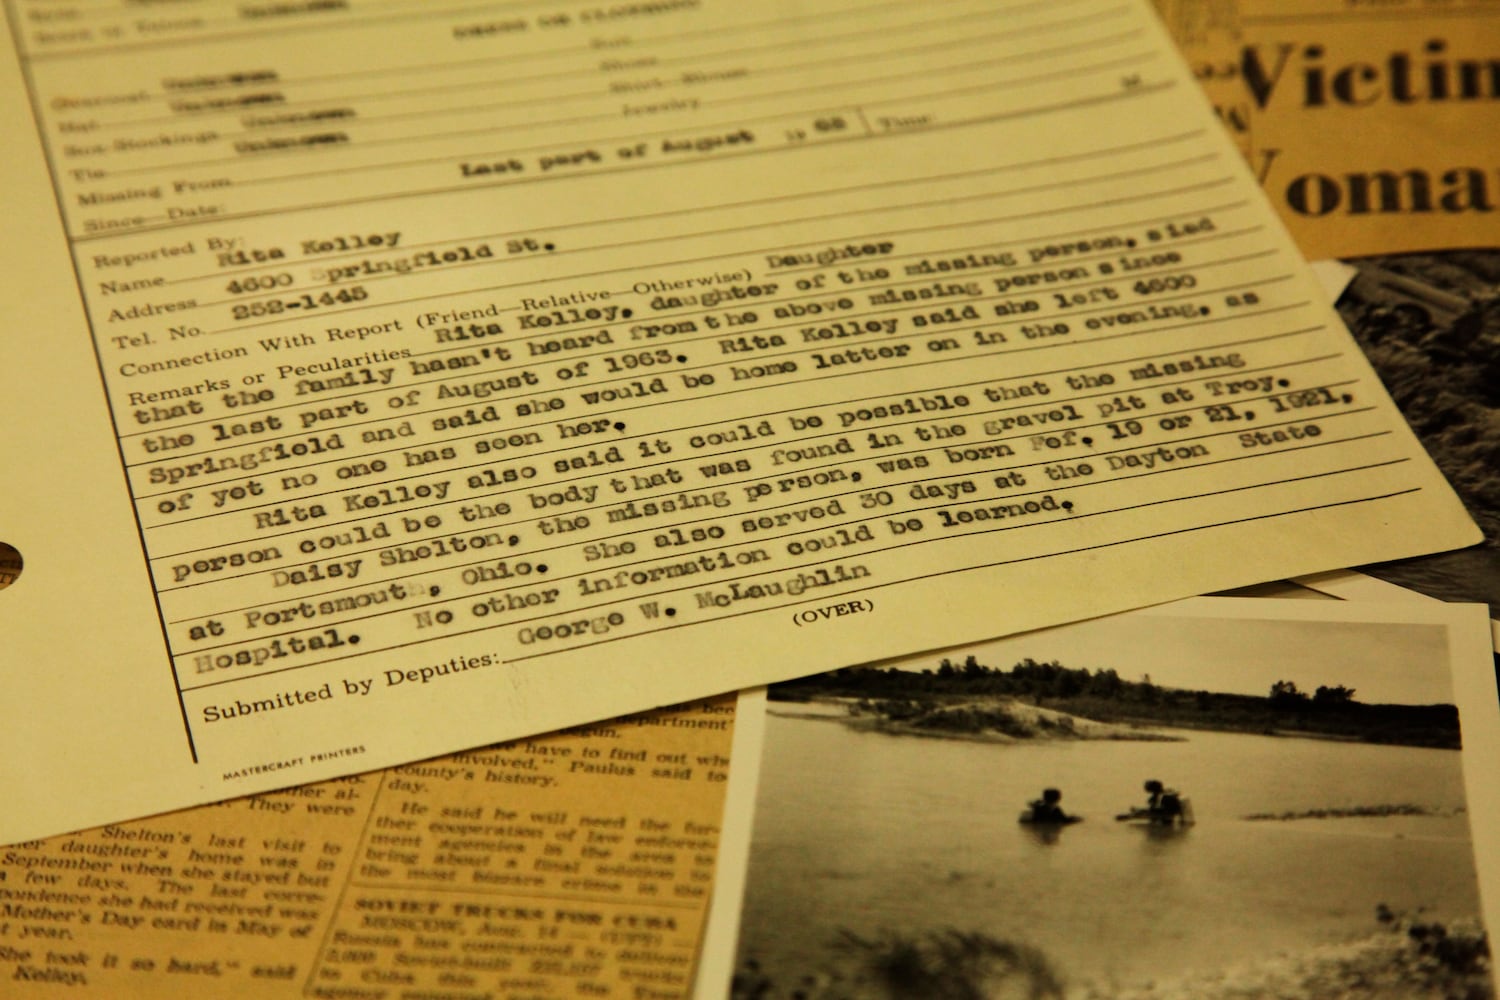 Unknown
DRESS OR CLOTHING
Overcoat Unknown
Hat Unknown Shoes
Sox—Stockings Unknown Shirt—Blouse
Tie Unknown Jewelry
Missing From
Since—Date: Last part of August 19 63 Time: M
Reported By:
Name Rita Kelley
Address 4600 Springfield St.
Tel. No. 252-1445
Connection With Report (Friend—Relative—Otherwise) Daughter
Remarks or Pecularities Rita Kelley, daughter of the missing person, siad
that the family hasn't heard from the above missing person since
the last part of August of 1963. Rita Kelley said she left 4600
Springfield and said she would be home latter on in the evening, as
of yet no one has seen her.
Rita Kelley also said it could be possible that the missing
person could be the body that was found in the gravel pit at Troy.
Daisy Shelton, the missing person, was born Fef. 19 or 21, 1921,
at Portsmouth, Ohio. She also served 30 days at the Dayton State
Hospital. No other information could be learned.
Submitted by Deputies: George W. McLaughlin
(OVER)
MASTERCRAFT PRINTERS
Victim
Woma
They were
Shelton's last visit to
her daughter's home was in
September when she stayed but
a few days. The last corre-
pondence she had received was
Mother's Day card in May of
t year.
She took it so hard," said
Kelley.
department'
begun.
we have to find out who
involved," Paulus said to
day.
county's history.
He said he will need the fur-
ther cooperation of law enforce-
ment agencies in the area to
bring about a final solution to
the most bizarre crime in the
SOVIET TRUCKS FOR CUBA
MOSCOW, Aug. 14 — (UPI) —
Russia has contracted to deliver
to Cuba this year, the